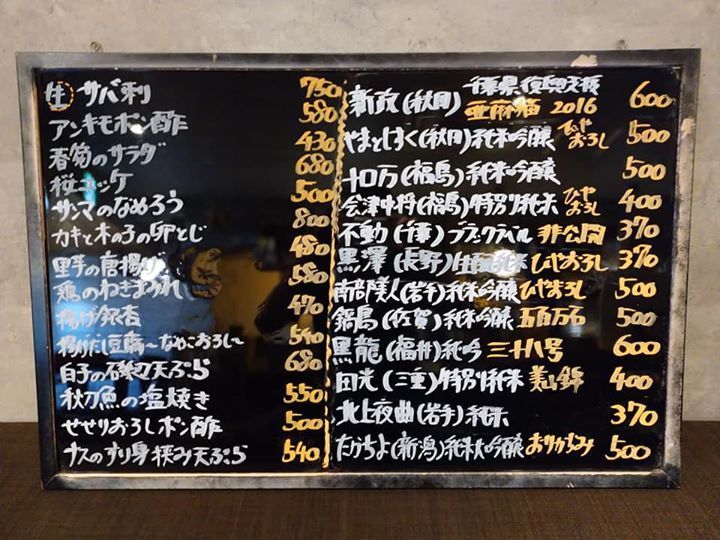 生 サバ刺 750
アンキモポン酢 580
春菊のサラダ 430
桜ユッケ 680
サンマのなめろう 500
カキと木の子の卵とじ 800
里芋の唐揚げ 480
鶏のねぎまみれ 580
揚げ銀杏 470
揚げだし豆腐〜なめこおろし〜 540
白子の磯辺天ぷら 680
秋刀魚の塩焼き 550
せせりおろしポン酢 500
ナスのすり身挟み天ぷら 540
新政(秋田) 亜麻猫 2016 600
やまとしずく(秋田)純米吟醸 ひやおろし 500
十口万(福島)純米吟醸 500
会津中将(福島)特別純米 ひやおろし 400
不動(千葉)ブラックラベル 非公開 370
黒澤(長野)生酛純米 ひやおろし 370
南部美人(岩手)純米吟醸 ひやおろし 500
鍋島(佐賀)純米吟醸 五百万石 500
黒龍(福井)純吟 三十八号 600
田光(三重)特別純米 美山錦 400
北上夜曲(岩手)純米 370
たけちよ(新潟)純米吟醸 おりがらみ 500